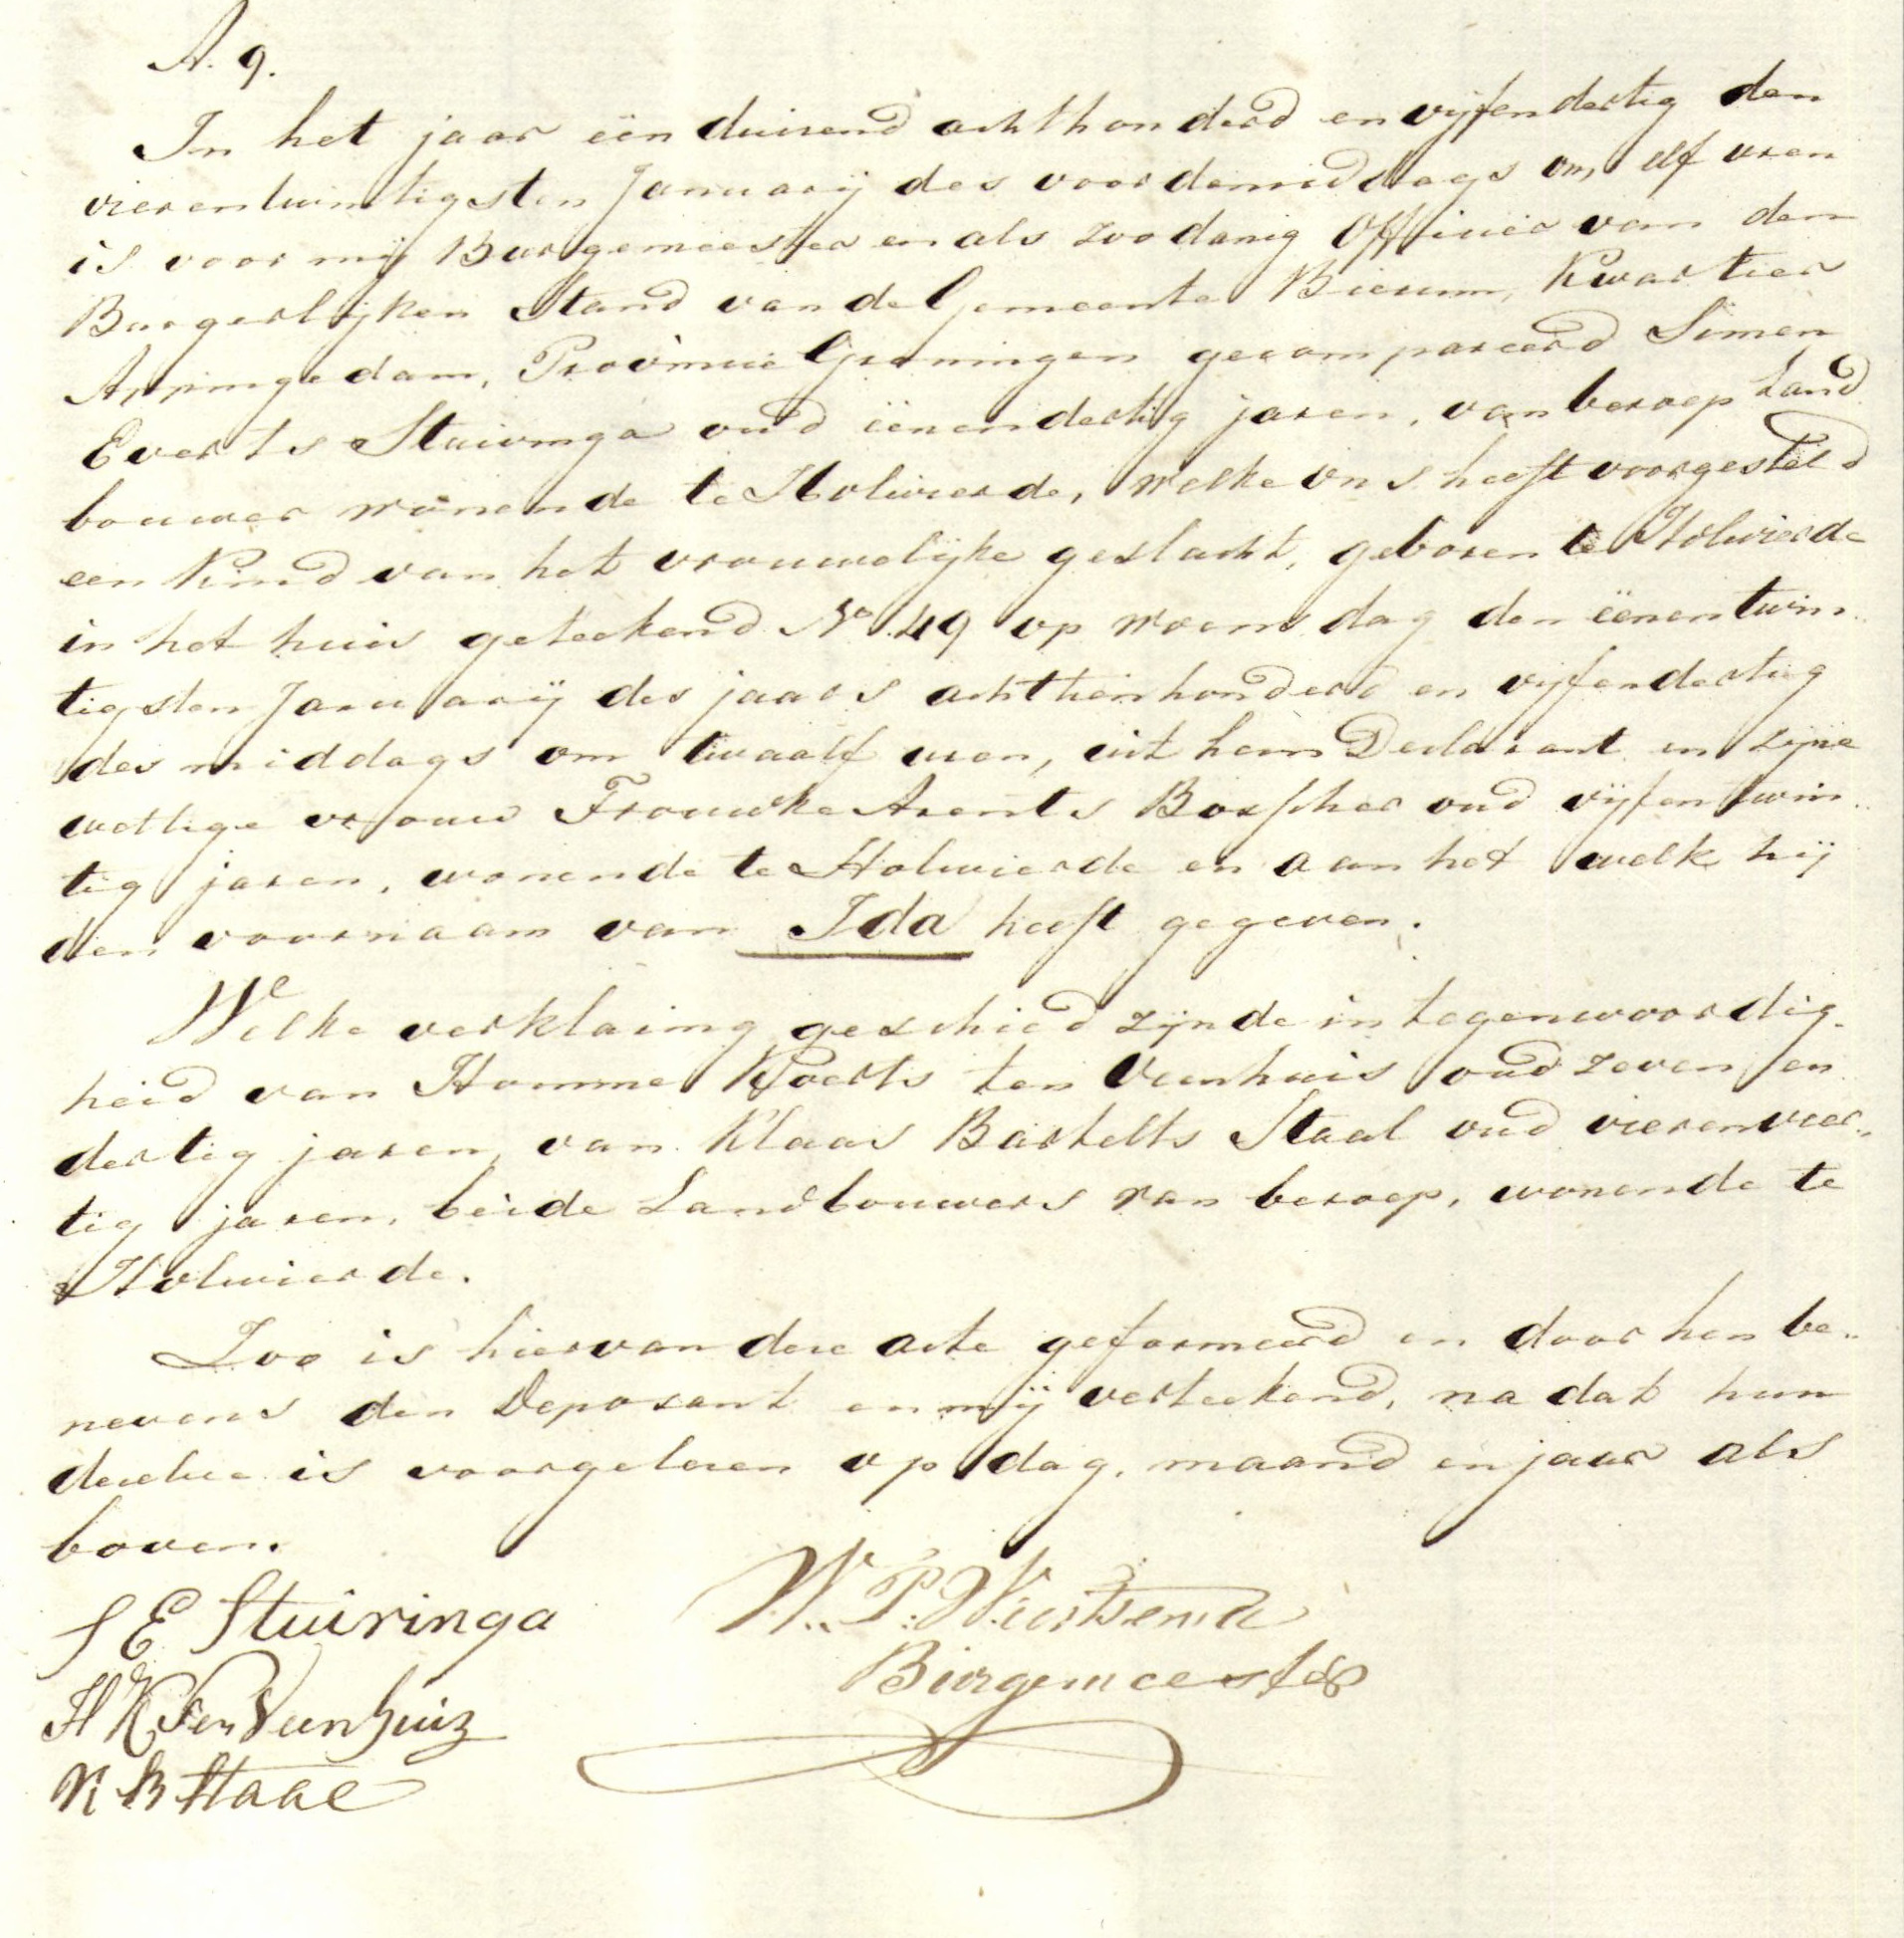 A. 9.
In het jaar één duisend achthonderd en vijfendertig den
vierentwintigsten Januarij des voordemiddags om elf uren
is voor mij Burgemeester en als zoodanig Officier van den
Burgerlijken Stand van de Gemeente Bierum, Kwartier
Appingedam, Provincie Groningen gecompareerd Simen
Everts Stuivinga oud éénendertig jaren, van beroep Land
bouwer wonende te Holwierde, welke ons heeft voorgesteld
een Kind van het vrouwelijke geslacht, geboren te Holwierde
in het huis geteekend No. 49 op woensdag den éénentwin..
tigsten Januarij des jaars achttienhonderd en vijfendertig
des middags om twaalf uren, uit hem Declarant en zijne
wettige vrouw Frouwke Arents Bosscher oud vijfentwin..
tig jaren, wonende te Holwierde en aan het welk hij
den voornaam van Ida heeft gegeven.
Welke verklaring geschied zijnde in tegenwoordig-
heid van Homme Koerts ten Veenhuis oud zeven en
dertig jaren, van Klaas Bartelts Staal oud vierenveer..
tig jaren, beide Landbouwers van beroep, wonende te
Holwierde.
Zoo is hiervan deze acte geformeerd en door hen be..
nevens den Deposant en mij verteekend, na dat hun
dezelve is voorgelezen op dag, maand en jaar als
boven.
S E Stuivinga
W. P. Wiertsema
Burgemeester
H K Ten Veenhuiz
K B Staal